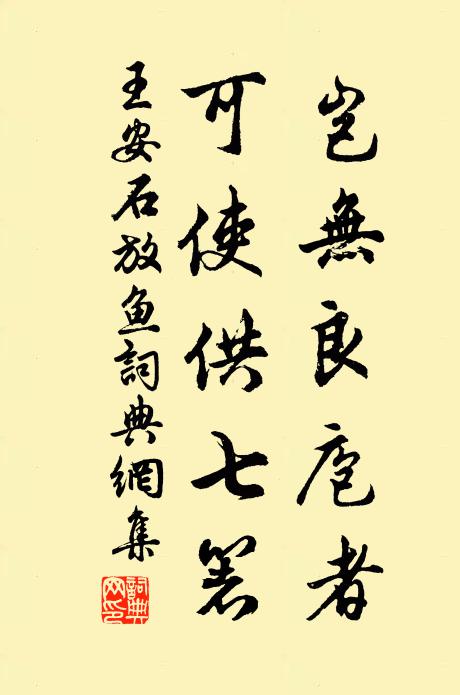 豈無良庖者
可使供七箸
王安石放魚詞典網集
詞典網印